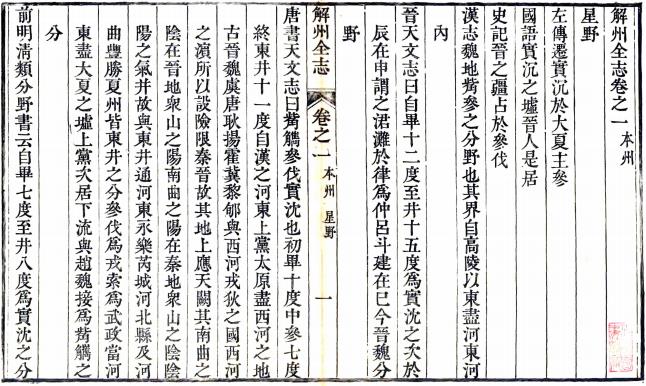 解州全志卷之一 本州
星野
左傳遷實沉於大夏主參
國語實沉之墟晉人是居
史記晉之疆占於參伐
漢志魏地觜參之分野也其界自高陵以東盡河東河
內
晉天文志曰自畢十二度至井十五度爲實沈之次於
辰在申謂之涒灘於律爲仲呂斗建在巳今晉魏分
野
解州全志 卷之一 本州 星野 一
唐書天文志曰觜觿參伐實沈也初畢十度中參七度
終東井十一度自漢之河東上黨太原盡西河之地
古晉魏虞唐耿揚霍冀黎郇與西河戎狄之國西河
之濱所以設險限秦晉故其地上應天闕其南曲之
陰在晉地衆山之陽南曲之陽在秦地衆山之陰陰
陽之氣并故與東井通河東永樂芮城河北縣及河
曲豐勝夏州皆東井之分參伐爲戎索爲武政當河
東盡大夏之墟上黨次居下流與趙魏接爲觜觿之
分
前明清類分野書云自畢七度至井八度爲實沈之分